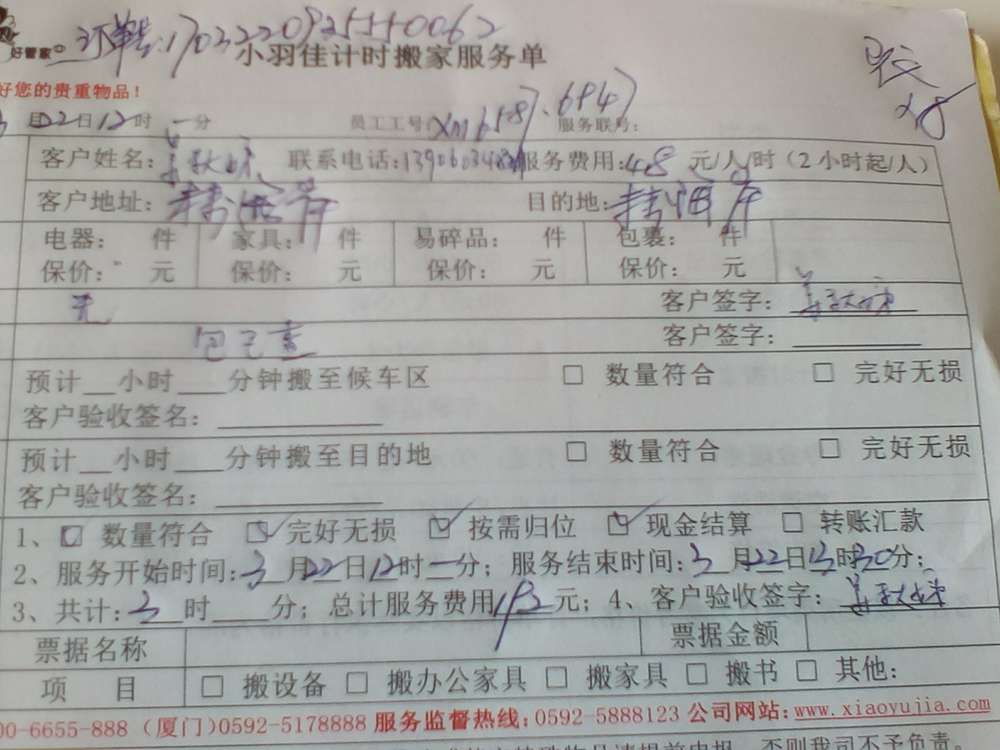 好管家
订单号:1703220925550062
小羽佳计时搬家服务单
好您的贵重物品!
3月22日12时一分 员工工号:XM6587、6947 服务联号:
客户姓名: 联系电话: 服务费用:48元/人/时(2小时起/人)
客户地址: 目的地:
电器: 件 家具: 件 易碎品: 件 包裹: 件
保价: 元 保价: 元 保价: 元 保价: 元
无 客户签字:
客户签字:
预计__小时___分钟搬至候车区 □ 数量符合 □ 完好无损
客户验收签名:
预计__小时___分钟搬至目的地 □ 数量符合 □ 完好无损
客户验收签名:
1、☑ 数量符合 ☑ 完好无损 ☑ 按需归位 ☑ 现金结算 □ 转账汇款
2、服务开始时间:3月22日12时一分;服务结束时间:3月22日13时30分;
3、共计:3时 分;总计服务费用 元;4、客户验收签字:
票据名称 票据金额
项 目 □ 搬设备 □ 搬办公家具 □ 搬家具 □ 搬书 □ 其他:
00-6655-888(厦门)0592-5178888 服务监督热线:0592-5888123 公司网站:www.xiaoyujia.com